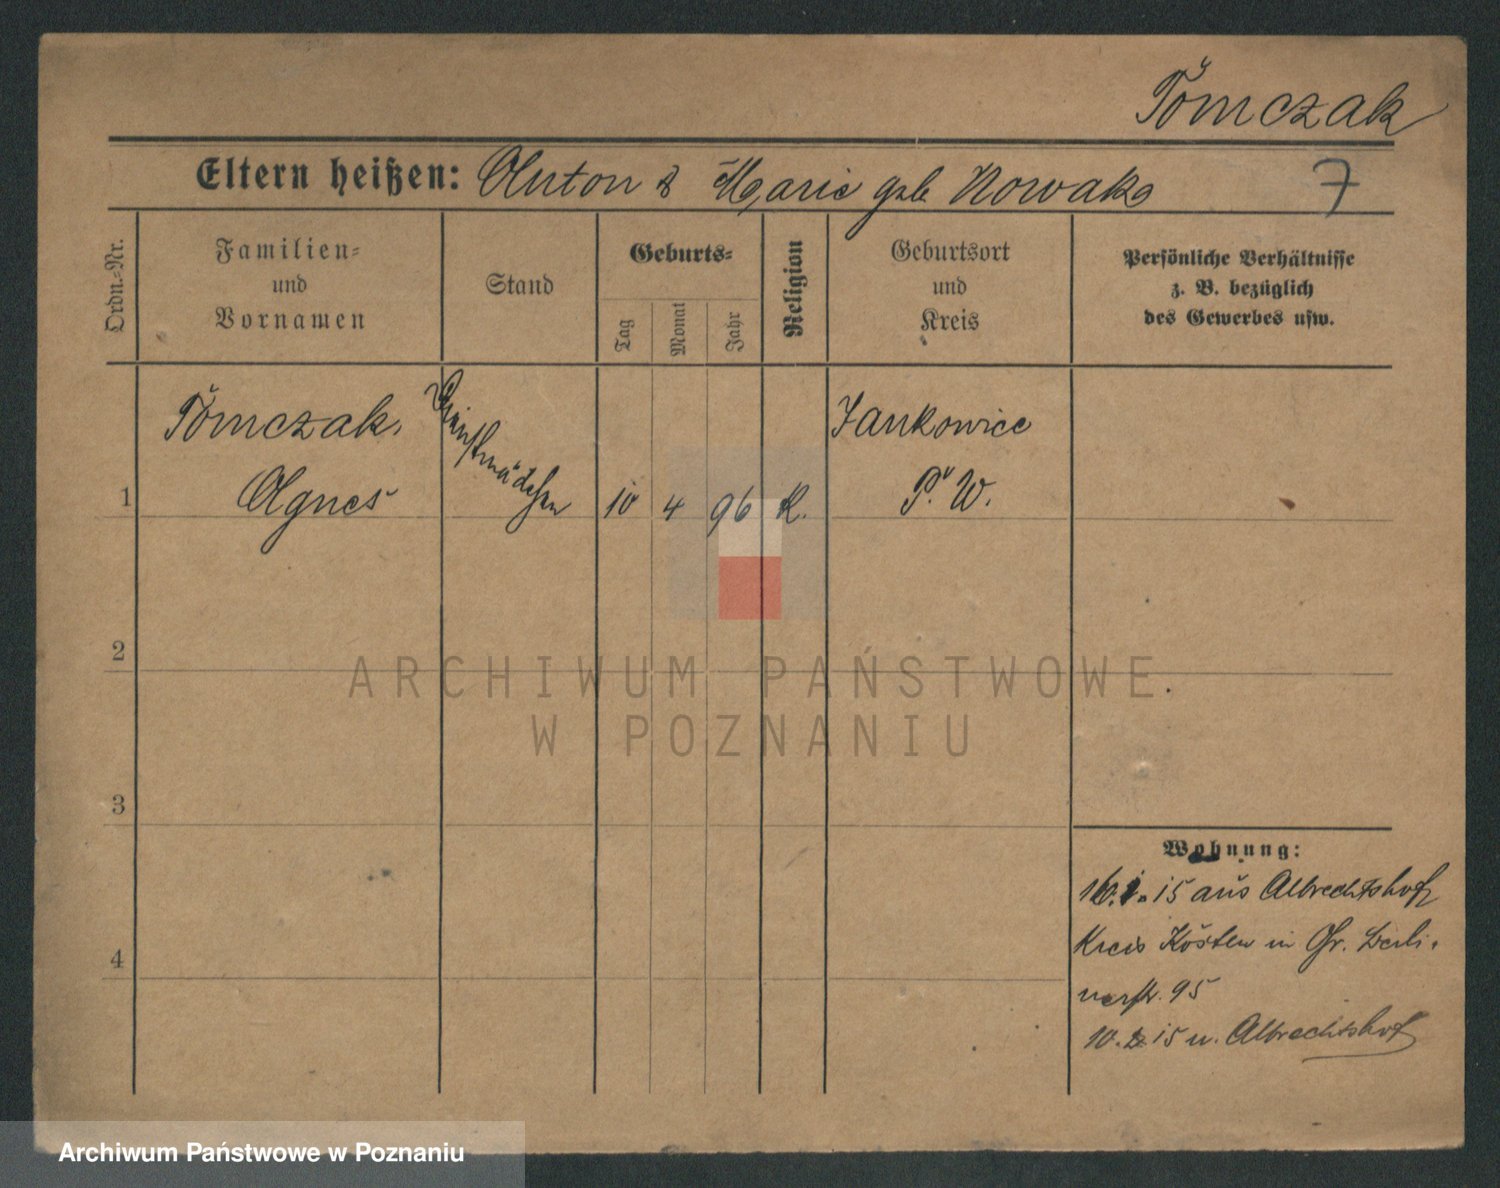 Tomczak
Eltern heißen: Anton & Marie geb Nowak
7
Ordn.-Nr.
Familien-
und
Vornamen
Stand
Geburts-
Tag
Monat
Jahr
Religion
Geburtsort
und
Kreis
Persönliche Verhältnisse
z. B. bezüglich
des Gewerbes usw.
1
Tomczak,
Agnes
Dienstmädchen
10
4
96
K.
Jankowice
P. W.
2
3
4
Wohnung:
15 aus Albrechtshof
Kreis Kosten in Gr. Berli-
nerstr. 95
10. 2 15 n. Albrechtshof
ARCHIWUM PAŃSTWOWE
W POZNANIU
Archiwum Państwowe w Poznaniu